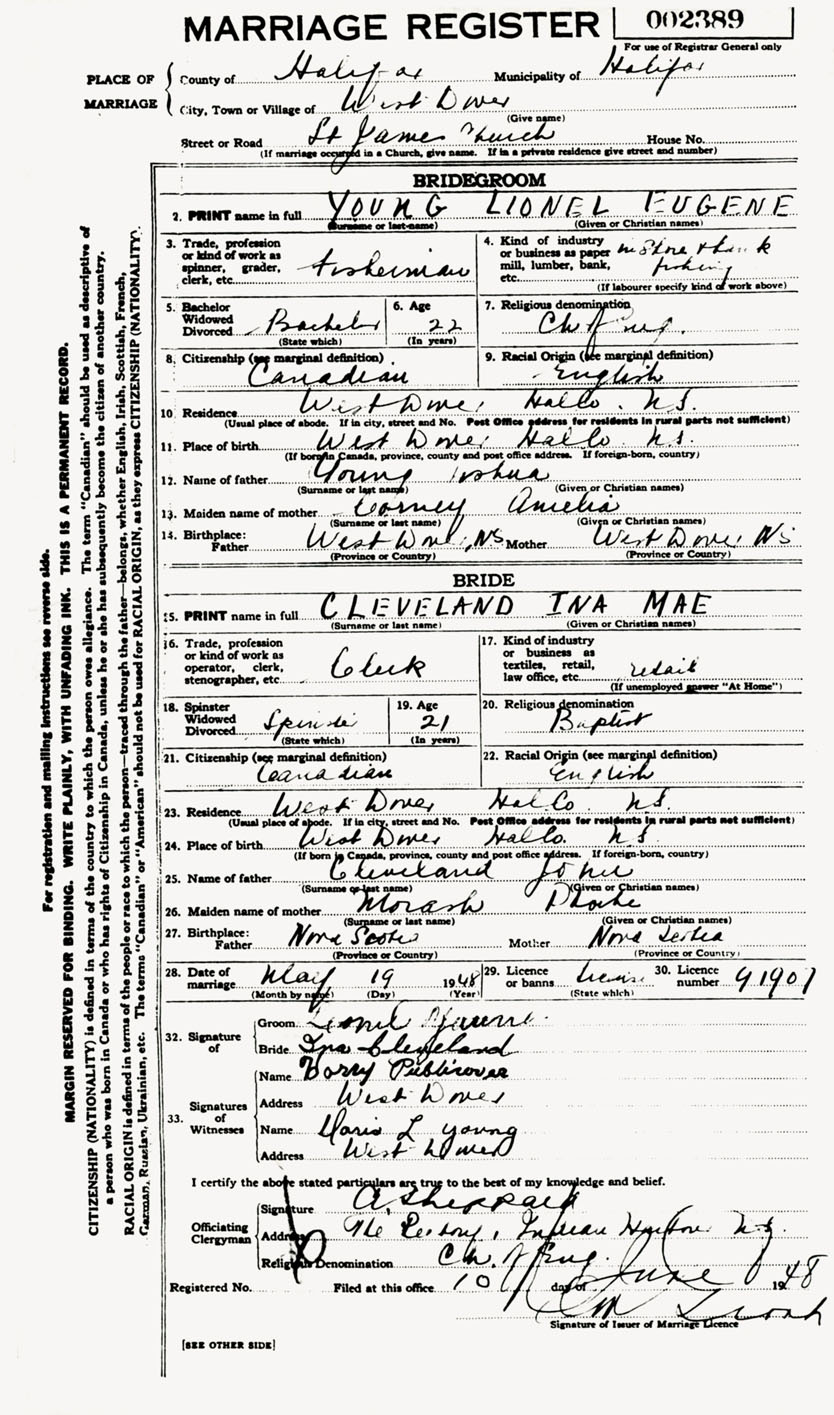 MARRIAGE REGISTER 002389
For use of Registrar General only
PLACE OF MARRIAGE
County of Halifax Municipality of Halifax
City, Town or Village of West Dover
(Give name)
Street or Road St James Church House No.
(If marriage occurred in a Church, give name. If in a private residence give street and number)
BRIDEGROOM
2. PRINT name in full YOUNG LIONEL EUGENE
(Surname or last name) (Given or Christian names)
3. Trade, profession or kind of work as spinner, grader, clerk, etc. fisherman
4. Kind of industry or business as paper mill, lumber, bank, etc. inshore & bank fishing
(If labourer specify kind of work above)
5. Bachelor Widowed Divorced Bachelor
(State which)
6. Age 22
(In years)
7. Religious denomination Ch of Eng.
8. Citizenship (see marginal definition) Canadian
9. Racial Origin (see marginal definition) English
10. Residence West Dover Hal Co. N.S.
(Usual place of abode. If in city, street and No. Post Office address for residents in rural parts not sufficient)
11. Place of birth West Dover Hal Co. N.S.
(If born in Canada, province, county and post office address. If foreign-born, country)
12. Name of father Young Joshua
(Surname or last name) (Given or Christian names)
13. Maiden name of mother Corney Amelia
(Surname or last name) (Given or Christian names)
14. Birthplace: Father West Dover, NS Mother West Dover NS
(Province or Country) (Province or Country)
BRIDE
15. PRINT name in full CLEVELAND INA MAE
(Surname or last name) (Given or Christian names)
16. Trade, profession or kind of work as operator, clerk, stenographer, etc. Clerk
17. Kind of industry or business as textiles, retail, law office, etc. retail
(If unemployed answer "At Home")
18. Spinster Widowed Divorced Spinster
(State which)
19. Age 21
(In years)
20. Religious denomination Baptist
21. Citizenship (see marginal definition) Canadian
22. Racial Origin (see marginal definition) English
23. Residence West Dover Hal Co. N.S.
(Usual place of abode. If in city, street and No. Post Office address for residents in rural parts not sufficient)
24. Place of birth West Dover Hal Co. N.S.
(If born in Canada, province, county and post office address. If foreign-born, country)
25. Name of father Cleveland John
(Surname or last name) (Given or Christian names)
26. Maiden name of mother Morash Phoebe
(Surname or last name) (Given or Christian names)
27. Birthplace: Father Nova Scotia Mother Nova Scotia
(Province or Country) (Province or Country)
28. Date of marriage May 19 1948
(Month by name) (Day) (Year)
29. Licence or banns License
(State which)
30. Licence number 91907
32. Signature of
Groom Lionel
Bride Ina Cleveland
33. Signatures of Witnesses
Name Publicover
Address West Dover
Name Doris L Young
Address West Dover
I certify the above stated particulars are true to the best of my knowledge and belief.
Officiating Clergyman
Signature A. Sheppard
Address The Rectory, Indian Harbour N.S.
Religious Denomination Ch. of Eng.
Registered No. Filed at this office 10 day of June 1948
Signature of Issuer of Marriage Licence
[SEE OTHER SIDE]
For registration and mailing instructions see reverse side.
MARGIN RESERVED FOR BINDING. WRITE PLAINLY, WITH UNFADING INK. THIS IS A PERMANENT RECORD.
CITIZENSHIP (NATIONALITY) is defined in terms of the country to which the person owes allegiance. The term "Canadian" should be used as descriptive of
a person who was born in Canada or who has rights of Citizenship in Canada, unless he or she has subsequently become the citizen of another country.
RACIAL ORIGIN is defined in terms of the people or race to which the person—traced through the father—belongs, whether English, Irish, Scottish, French,
German, Russian, Ukrainian, etc. The terms "Canadian" or "American" should not be used for RACIAL ORIGIN, as they express CITIZENSHIP (NATIONALITY).